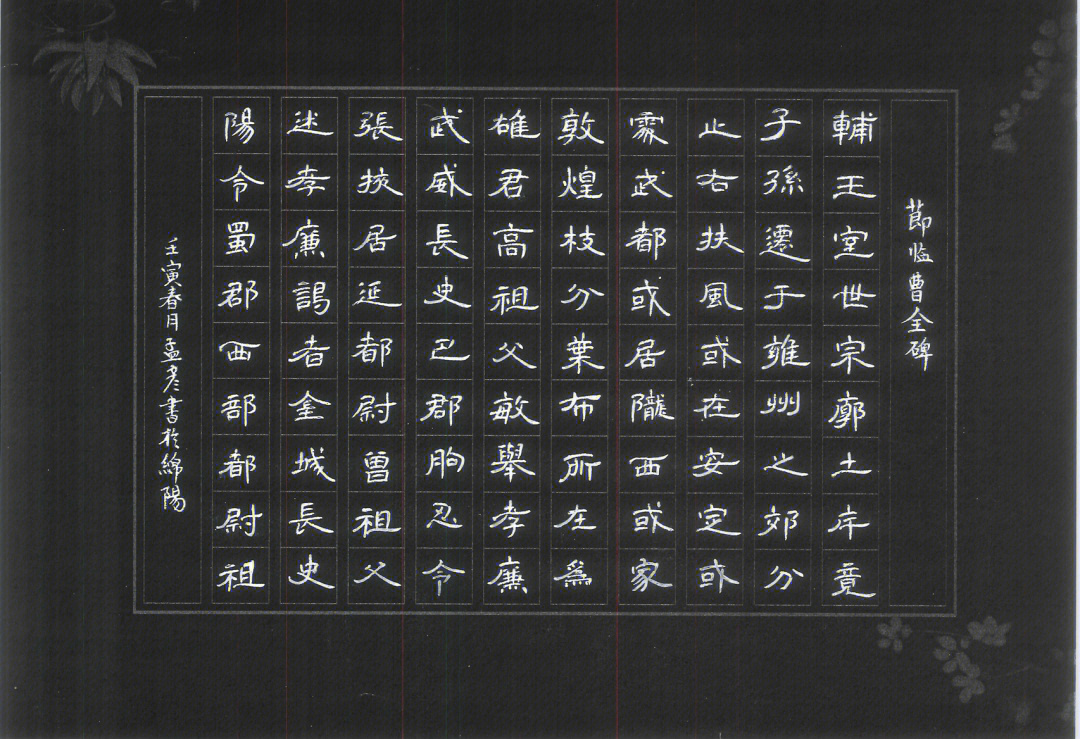 節临曹全碑
輔王室世宗廓土斥竟
子孫遷于雍州之郊分
止右扶風或在安定或
處武都或居隴西或家
敦煌枝分葉布所在為
雄君高祖父敏舉孝廉
武威長史巴郡朐忍令
張掖居延都尉曾祖父
述孝廉謁者金城長史
陽令蜀郡西部都尉祖
壬寅春月孟彦書於綿陽